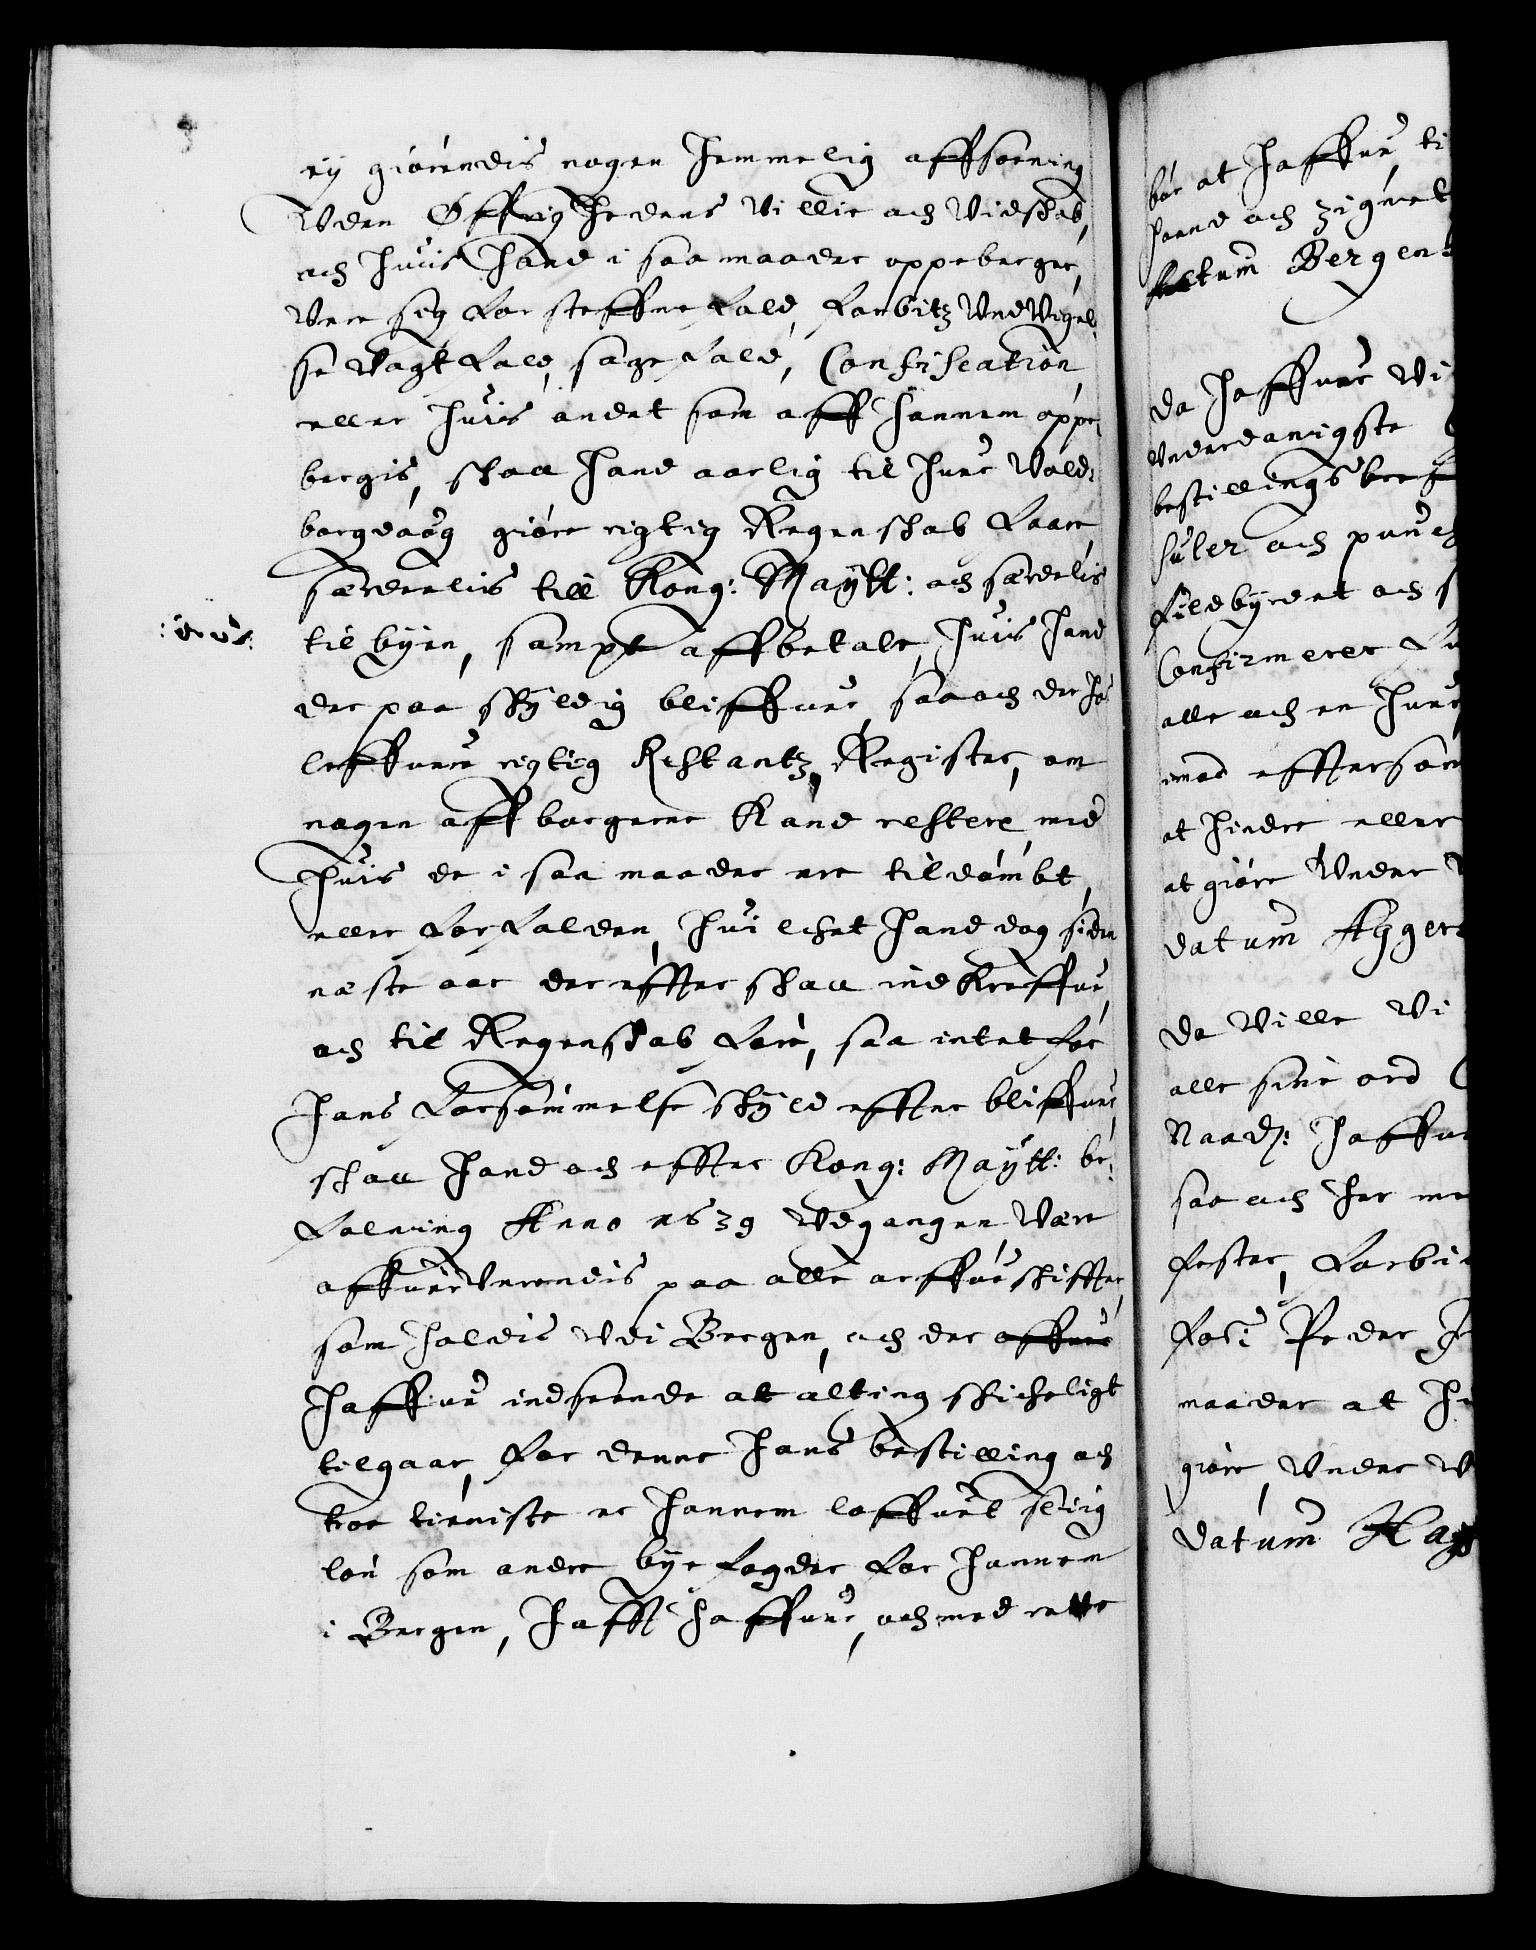 eij giörendis nogen hemmelig affsoening
Uden Öffrighedens Villie och Vidskab,
och huis hand i saa maader oppeberger,
Vere sig for steffnefald, forbitz Und Vigel
se Vagt fald, sagefald, Confiscation
eller huis andet som aff hannem oppe¬
bergis, skall hand aarlig til huer Vold¬
borgdaug giöre rigtig Regenskab faare
særdeelis till Kong: Maÿtt: och særdelis
til byen, sampt affbetale, huis hand
der paa skÿldig bliffuer, saa och der hos
leffuere rigtig Restantz Register, om
nogen aff borgerne Kand restere med
huis de i saa maader ere tildömbt,
eller forfalden, huilchet hand dog siden
neste aar der effter skall indkreffue,
och til Regenskab före, saa intet for
hans forsömmelse skÿld effter bliffuer,
skall hand och effter Kong: Maÿtt: be¬
falning Anno 1639 Udgangen Være
offueruerendis paa alle arffueskiffter,
som holdis Udi Bergen, och der offuer
haffue indseende at alting skicheligt
tilgaar, for denne hans bestilling och
troe tieniste er hannem loffuet slig
lön som andre bye fogder for hannem
i Bergen, hafft haffuer, och med rette
bör at haffue, ti
haand och zignet
Actum Bergen
Da haffuer Vi
Underdanigste
bestillings breff
huler och punch
fuldbyrdet och s
Confirmerer
alle och en huer
imod effterscre
at hindre eller
at giöre Under
datum Aggers
Da Ville Vi
alle sine ord
Naad: haffue
saa och her me
fester, forbi
for: Peder
maader at hi
giöre, Under
datum Hag